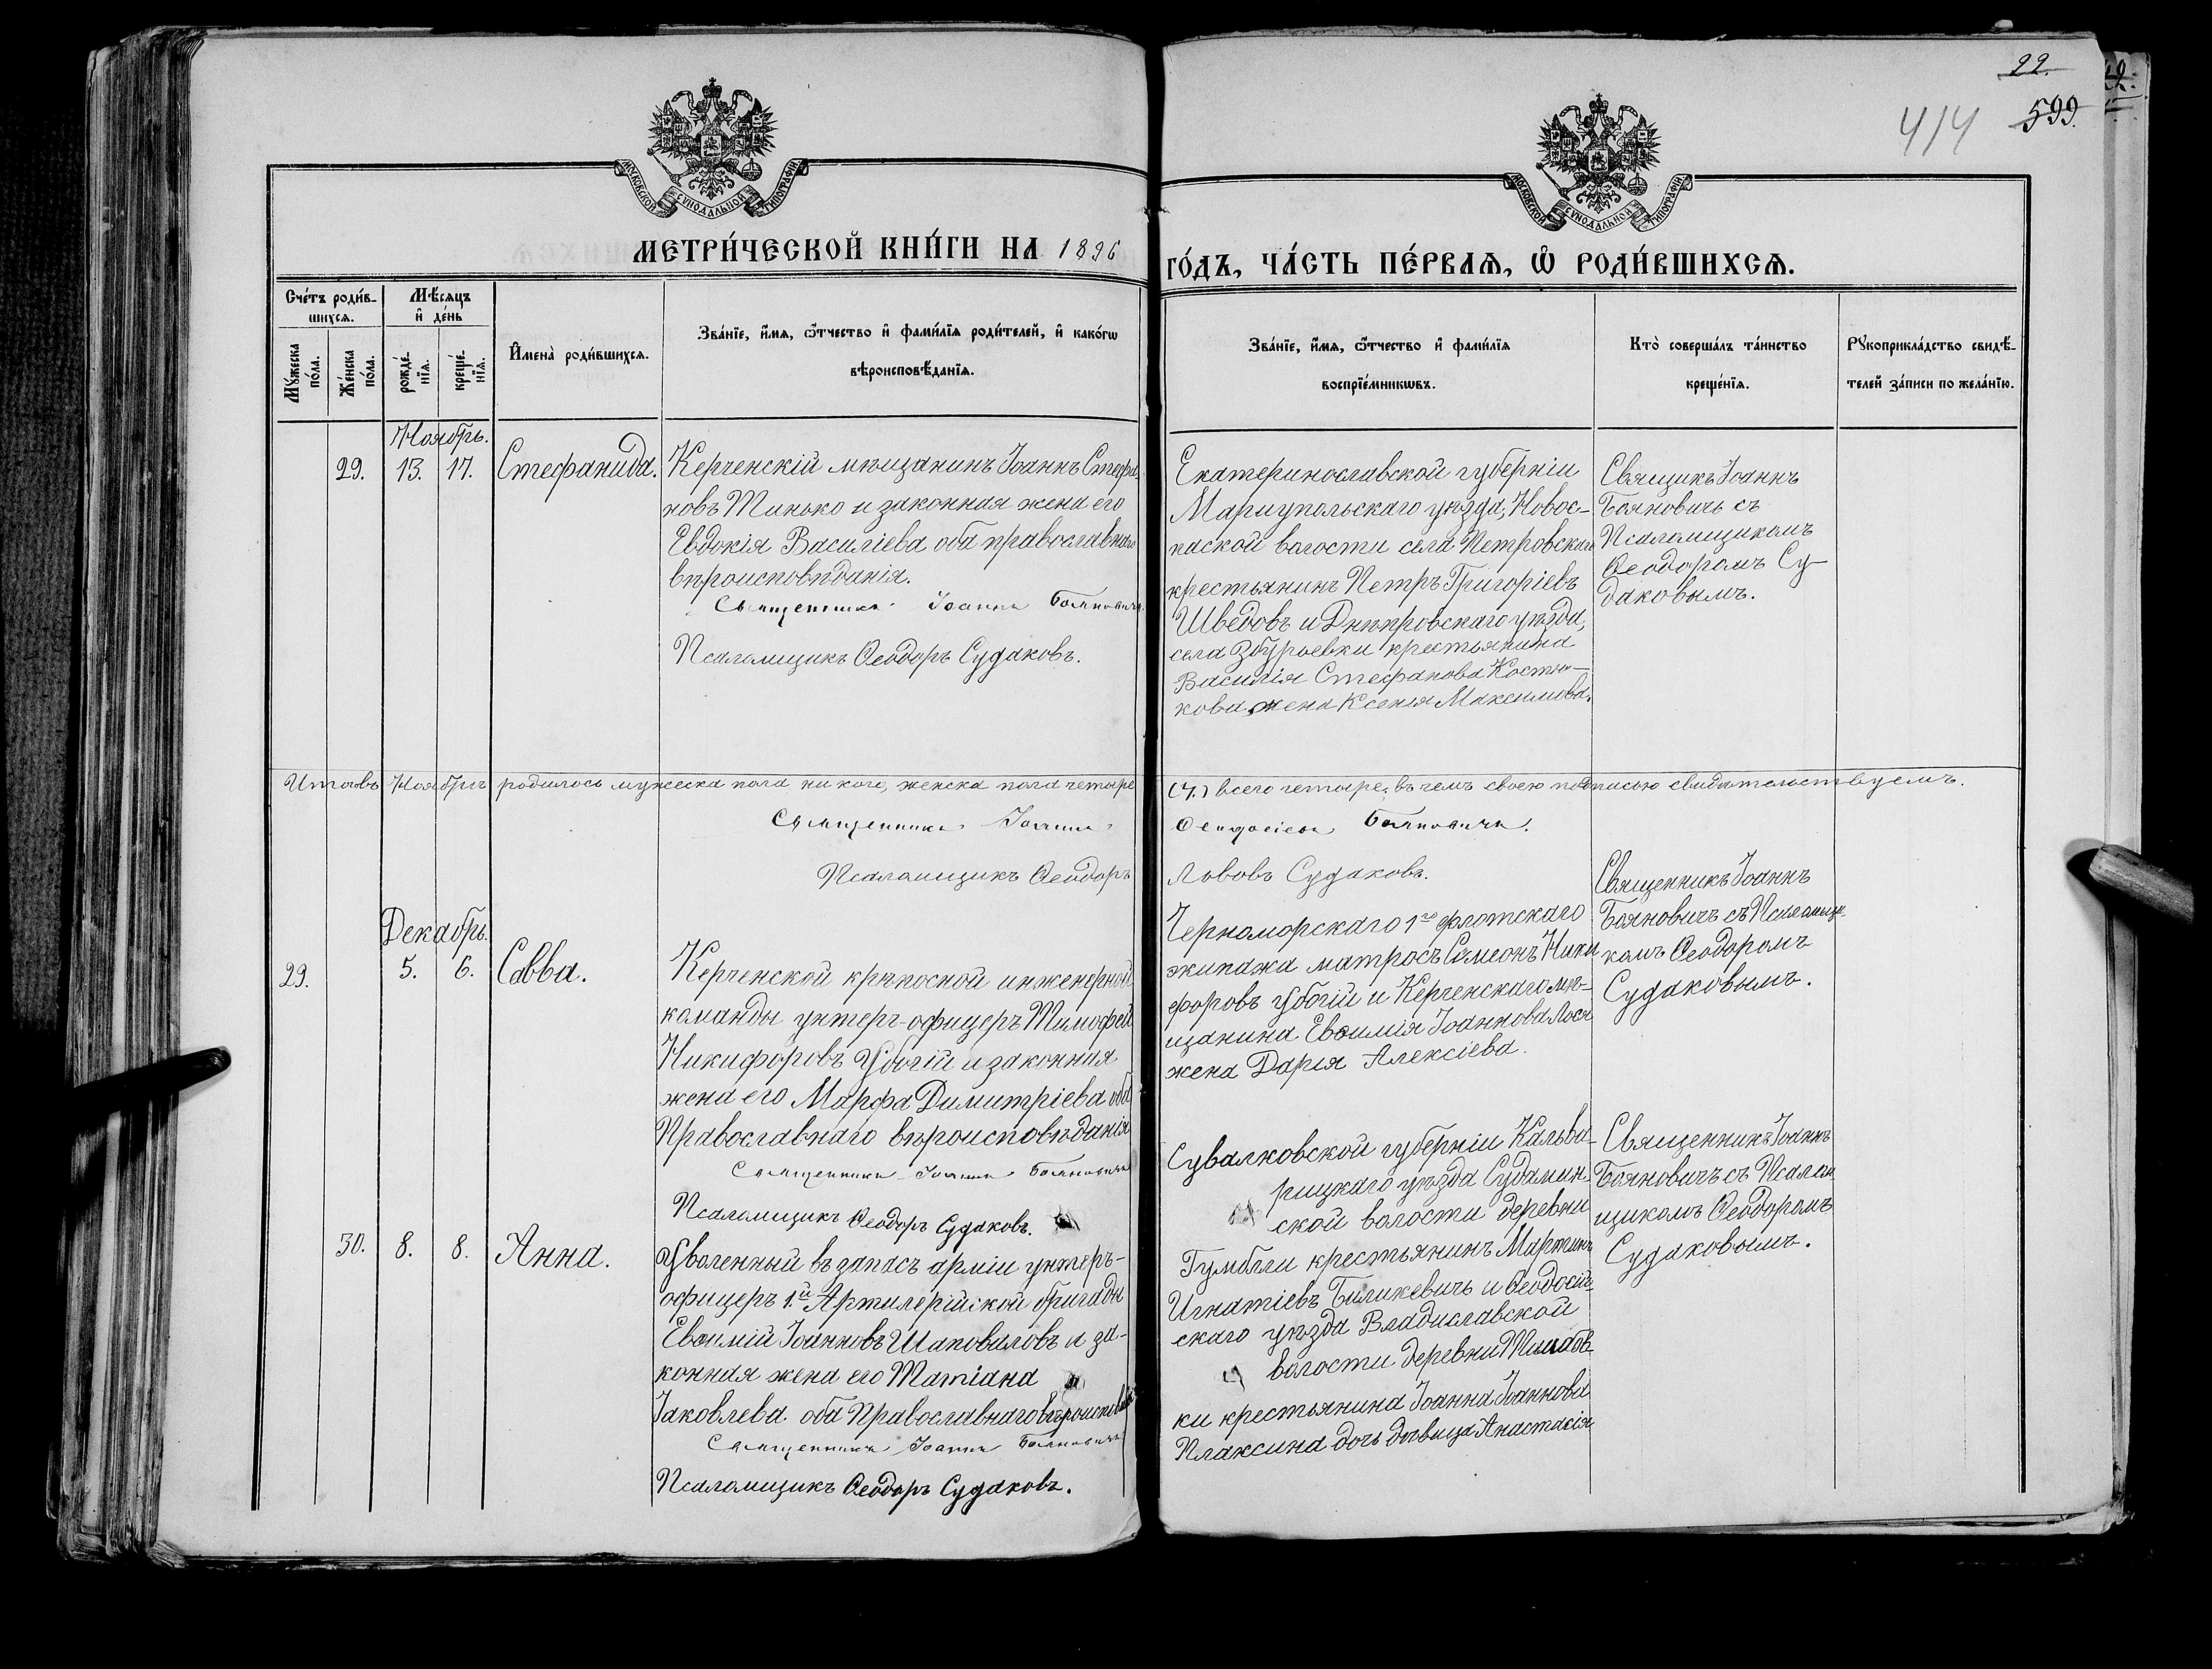 22.
599.
414
МОСКОВСКОЙ СѴНОДАЛЬНОЙ ТИПОГРАФІИ
МОСКОВСКОЙ СѴНОДАЛЬНОЙ ТИПОГРАФІИ
МЕТРИ́ЧЕСКОЙ КНИ́ГИ НА 1896
ГО́ДЪ, ЧА́СТЬ ПЕ́РВАѦ, Ѡ РОДИ́ВШИХСѦ.
Сче́тъ роди́в-
шихсѧ.
Мꙋ́жеска
по́ла.
Же́нска
по́ла.
Мѣ́сѧцъ
и҆ де́нь
рожде́-
нїѧ.
креще́-
нїѧ.
И҆мена̀ роди́вшихсѧ.
Зва́нїе, и҆́мѧ, ѻ҆́тчество и҆ фами́лїѧ роди́телей, и҆ како́гѡ
вѣроисповѣ́данїѧ.
Зва́нїе, и҆́мѧ, ѻ҆́тчество и҆ фами́лїѧ
воспрїе́мникѡвъ.
Кто̀ соверша́лъ та́инство
креще́нїѧ.
Рꙋкоприкла́дство свидѣ́-
телей за́писи по жела́нїю.
Ноябрь.
29. 13. 17. Стефанида.
Керченскій мѣщанинъ Іоаннъ Стефа-
новъ Минько и законная жена его
Евдокія Василіева оба православнаго
вѣроисповѣданія.
Священникъ Іоаннъ Бояновичъ
Псаломщикъ Ѳеодоръ Судаковъ.
Екатеринославской губерніи
Маріупольскаго уѣзда, Новос-
паской волости села Петровскаго
крестьянинъ Петръ Григоріевъ
Шведовъ и Днѣпровскаго уѣзда,
села Збурьевки крестьянина
Василія Стефанова Костю-
кова жена Ксенія Максимова.
Свящикъ Іоаннъ
Бояновичъ съ
Псаломщикомъ
Ѳеодоромъ Су-
даковымъ.
Итого въ Ноябрѣ родилось мужеска пола никого, женска пола четыре
(4.) всего четыре, въ чемъ своею подписью свидѣтельствуемъ.
Священникъ Іоаннъ
Ѳеодосіевъ Бояновичъ.
Псаломщикъ Ѳеодоръ
Львовъ Судаковъ.
Декабрь.
29. 5. 6. Савва.
Керченской крѣпосной инженерной
команды унтеръ-офицеръ Тимофей
Никифоровъ Убогій и законная
жена его Марфа Димитріева оба
Православнаго вѣроисповѣданія
Священникъ Іоаннъ Бояновичъ
Псаломщикъ Ѳеодоръ Судаковъ.
Черноморскаго 1го флотскаго
экипажа матросъ Симеонъ Ники
форовъ Убогій и Керченскаго мѣ-
щанина Евѳимія Іоаннова Лося
жена Дарія Алексіева.
Священникъ Іоаннъ
Бояновичъ съ Псаломщи-
комъ Ѳеодоромъ
Судаковымъ.
30. 8. 8. Анна.
Уволенный въ запасъ арміи унтеръ-
офицеръ 1.й Артилерійской бригады
Евѳимій Іоанновъ Шаповаловъ и за-
конная жена его Татіана
Іаковлева оба Православнаго вѣроисповѣд
Священникъ Іоаннъ Бояновичъ
Псаломщикъ Ѳеодоръ Судаковъ.
Сувалковской губерніи Кальва-
рицкаго уѣзда Судамин-
ской волости деревни
Гумбали крестьянинъ Мартинъ
Игнатіевъ Биликевичъ и Ѳеодосій-
скаго уѣзда Владиславской
волости деревни
ки крестьянина Іоанна Іоаннова
Плаксина дочь дѣвица Анастасія
Священникъ Іоаннъ
Бояновичъ съ Псалом
щикомъ Ѳеодоромъ
Судаковымъ.